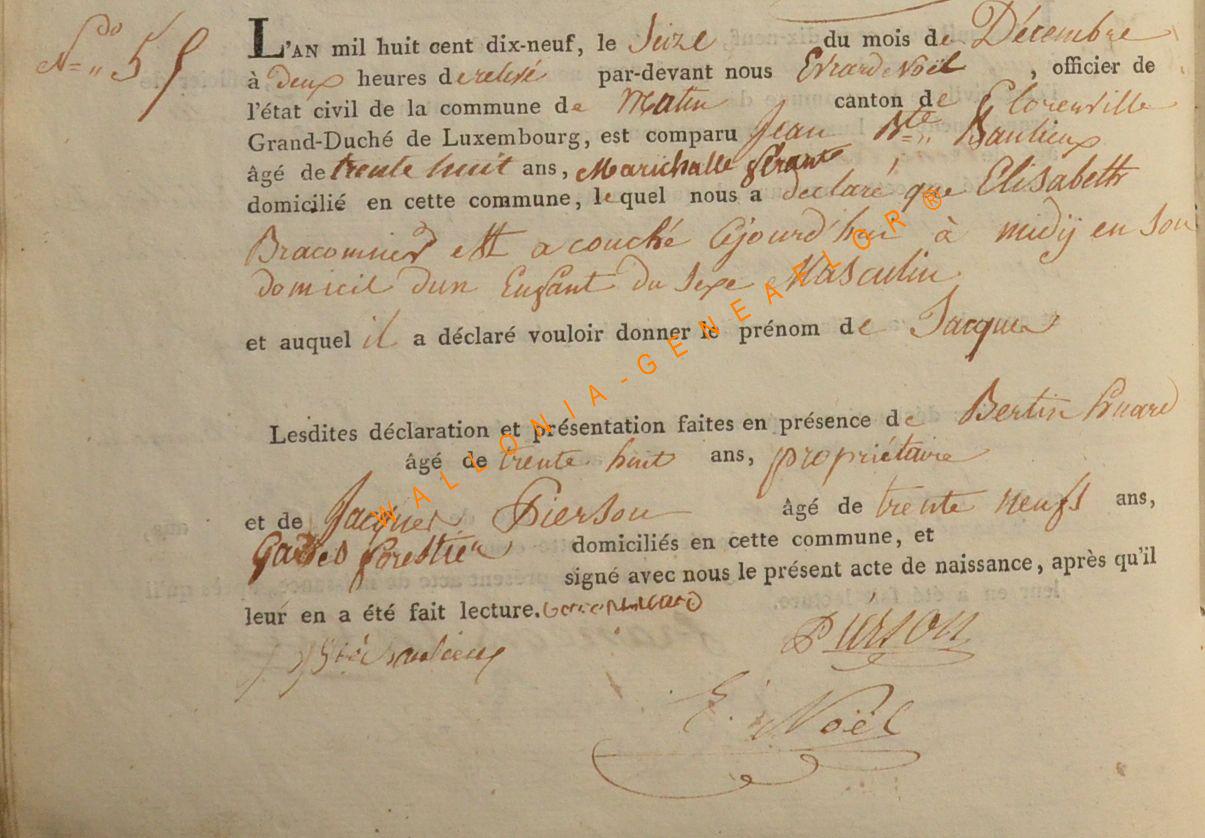 N°. 55
L'AN mil huit cent dix-neuf, le Seize du mois de Décembre
à deux heures de relevé par-devant nous Evrard Noël, officier de
l'état civil de la commune de Matin canton de Florenville
Grand-Duché de Luxembourg, est comparu Jean Bte Baulieux
âgé de trente huit ans, Marichalle férante,
domicilié en cette commune, lequel nous a déclaré que Elisabeth
Braconnier est acouché Ajourd'hui à midÿ en son
domicil dun Enfant du sexe Masculin
et auquel il a déclaré vouloir donner le prénom de Jacques
Lesdites déclaration et présentation faites en présence de Bertin
âgé de trente huit ans, propriétaire
et de Jacques Pierson âgé de trente neufs ans,
Gardes forestier domiciliés en cette commune, et
signé avec nous le présent acte de naissance, après qu'il
leur en a été fait lecture.
Pierson
J Bte Baulieux
E. Noël
WALLONIA-GENEARLOR®